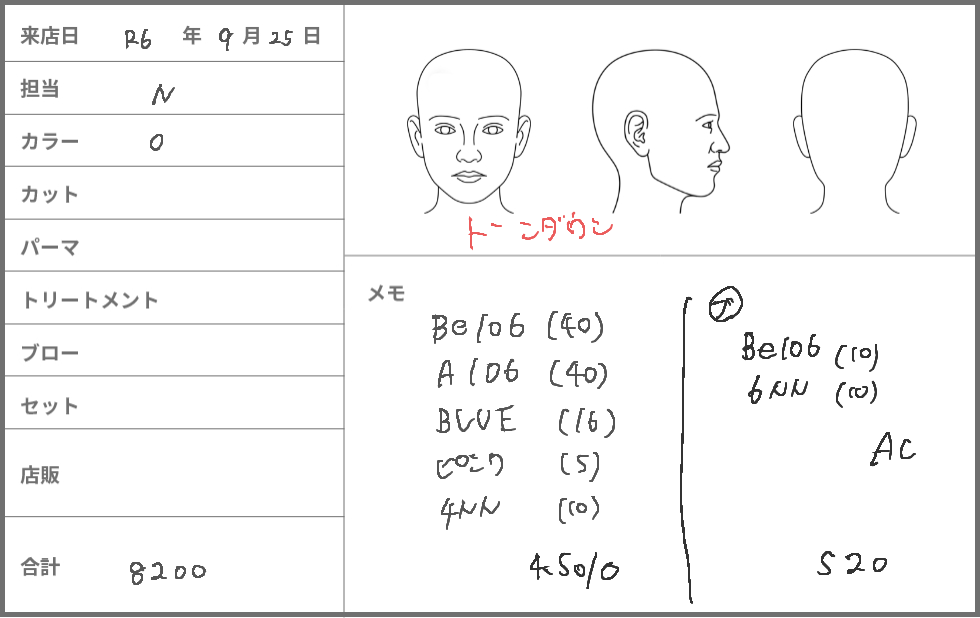 来店日 R6 年 9 月 25 日
担当 N
カラー 0
カット
パーマ
トリートメント
ブロー
セット
店販
合計 8200
トーンダウン
メモ
Be106 (40)
A106 (40)
BLUE (16)
ピンク (5)
4NN (10)
4.5%
↑
Be106 (10)
6NN (10)
AC
S20